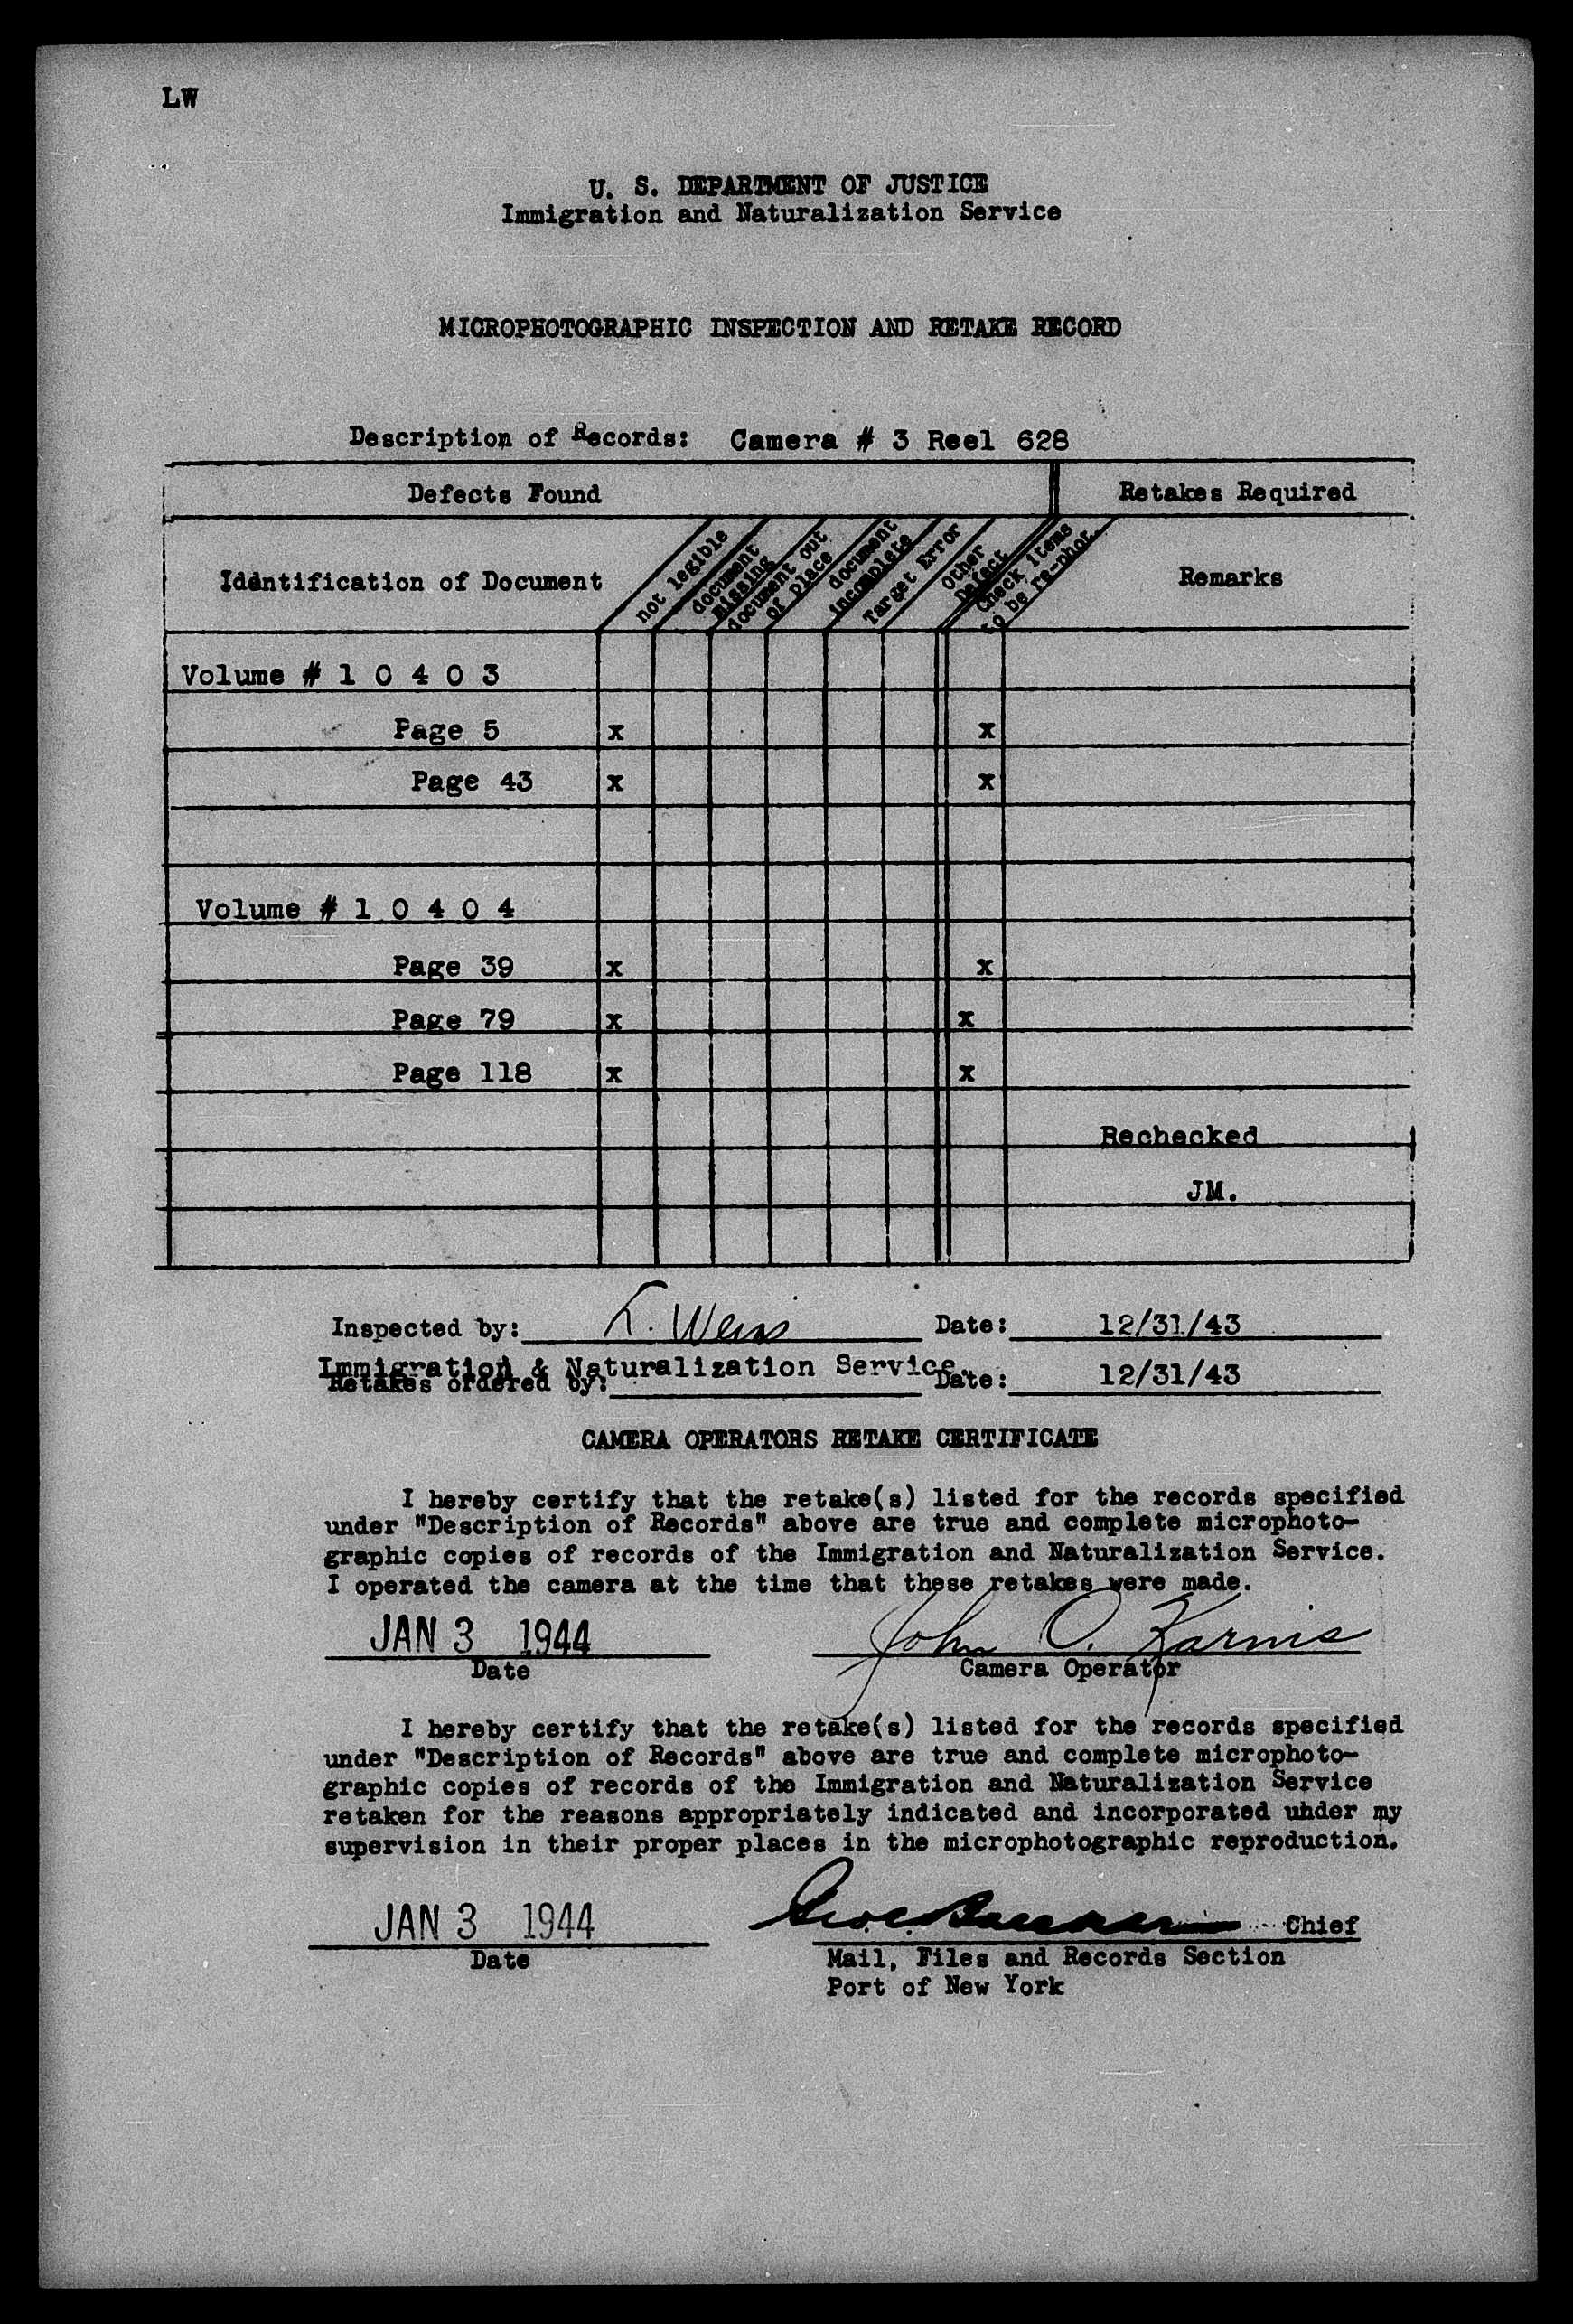 LW
U. S. DEPARTMENT OF JUSTICE
Immigration and Naturalization Service
MICROPHOTOGRAPHIC INSPECTION AND RETAKE RECORD
Description of Records: Camera # 3 Reel 628
Defects Found Retakes Required
Identification of Document
not legible
document missing
document out of place
document incomplete
Target Error
Other Defect
Check items to be re-phot.
Remarks
Volume # 1 0 4 0 3
Page 5 x x
Page 43 x x
Volume # 1 0 4 0 4
Page 39 x x
Page 79 x x
Page 118 x x
Rechecked
JM.
Inspected by: Weiss Date: 12/31/43
Immigration & Naturalization Service.
Retakes ordered by: Date: 12/31/43
CAMERA OPERATORS RETAKE CERTIFICATE
I hereby certify that the retake(s) listed for the records specified
under "Description of Records" above are true and complete microphoto-
graphic copies of records of the Immigration and Naturalization Service.
I operated the camera at the time that these retakes were made.
JAN 3 1944 John O. Karnis
Date Camera Operator
I hereby certify that the retake(s) listed for the records specified
under "Description of Records" above are true and complete microphoto-
graphic copies of records of the Immigration and Naturalization Service
retaken for the reasons appropriately indicated and incorporated uhder my
supervision in their proper places in the microphotographic reproduction.
JAN 3 1944 Chief
Date Mail, Files and Records Section
Port of New York